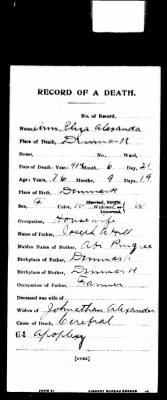 RECORD OF A DEATH.
No. of Record.
Name, Ann Eliza Alexander
Place of Death, Denmark
Street, No. Ward,
Date of Death: Year, 1914 Month, 6 Day, 21
Age: Years, 76 Months, 9 Days, 19
Place of Birth, Denmark
Sex, F Color, W Married, Single, Widowed or Divorced, W
Occupation, Housewife
Name of Father, Joseph
Maiden Name of Mother, Abi Pingree
Birthplace of Father, Denmark
Birthplace of Mother, Denmark
Occupation of Father, Farmer
Deceased was wife of
Widow of Johnathan Alexander
Cause of Death, Cerebral
64 Apoplexy
[OVER]
LIBRARY BUREAU